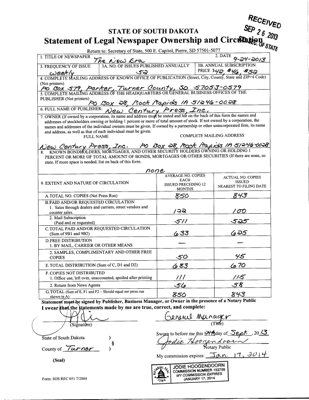 RECEIVED
SEP 26 2013
SEC. OF STATE
STATE OF SOUTH DAKOTA
Statement of Legal Newspaper Ownership and Circulation
Return to: Secretary of State, 500 E. Capitol, Pierre, SD 57501-5077
1. TITLE OF NEWSPAPER The New Era
2. DATE 9-24-2013
3. FREQUENCY OF ISSUE weekly
3A. NO. OF ISSUES PUBLISHED ANNUALLY 52
3B. ANNUAL SUBSCRIPTION PRICE $42, $46, $52
4. COMPLETE MAILING ADDRESS OF KNOWN OFFICE OF PUBLICATION (Street, City, County, State and ZIP+4 Code) (Not printers)
PO Box 579, Parker, Turner County, SD 57053-0579
5. COMPLETE MAILING ADDRESS OF THE HEADQUARTERS OF GENERAL BUSINESS OFFICES OF THE
PUBLISHER (Not printer)
PO Box 28, Rock Rapids IA 51246-0028
6. FULL NAME OF PUBLISHER: New Century Press, Inc.
7. OWNER (If owned by a corporation, its name and address must be stated and also on the back of this form the names and
addresses of stockholders owning or holding 1 percent or more of total amount of stock. If not owned by a corporation, the
names and addresses of the individual owners must be given. If owned by a partnership or other unincorporated firm, its name
and address, as well as that of each individual must be given.
FULL NAME COMPLETE MAILING ADDRESS
New Century Press, Inc. PO Box 28, Rock Rapids IA 51246-0028
8. KNOWN BONDHOLDERS, MORTGAGEES, AND OTHER SECURITY HOLDERS OWNING OR HOLDING 1
PERCENT OR MORE OF TOTAL AMOUNT OF BONDS, MORTGAGES OR OTHER SECURITIES (If there are none, so
state. If more space is needed, list on back of this form.
none
9. EXTENT AND NATURE OF CIRCULATION
AVERAGE NO. COPIES EACH ISSUED PRECEDING 12 MONTHS
ACTUAL NO. COPIES ISSUED NEAREST TO FILING DATE
A. TOTAL NO. COPIES (Net Press Run) 850 843
B. PAID AND/OR REQUESTED CIRCULATION
1. Sales through dealers and carriers, street vendors and
counter sales. 122 100
2. Mail Subscription
(Paid and or requested) 511 525
C. TOTAL PAID AND/OR REQUESTED CIRCULATION
(Sum of 9B1 and 9B2) 633 625
D. FREE DISTRIBUTION
1. BY MAIL, CARRIER OR OTHER MEANS — —
2. SAMPLES, COMPLIMENTARY AND OTHER FREE
COPIES 50 45
E. TOTAL DISTRIBUTION (Sum of C, D1 and D2) 683 670
F. COPIES NOT DISTRIBUTED
1. Office use, left over, unaccounted, spoiled after printing 111 115
2. Return from News Agents 56 58
G. TOTAL (Sum of E, F1 and F2 - Should equal net press run
shown in A) 850 843
Statement must be signed by Publisher, Business Manager, or Owner in the presence of a Notary Public
I swear that the statements made by me are true, correct, and complete:
General Manager
(Signature) (Title)
State of South Dakota )
§
County of Turner )
Sworn to before me this 24th day of Sept., 2013
Jodie Hoogendoorn
Notary Public
My commission expires: Jan. 17, 2014
(Seal)
JODIE HOOGENDOORN
MY COMMISSION EXPIRES
JANUARY 17, 2014
Form: SOS REC 051 7/2004